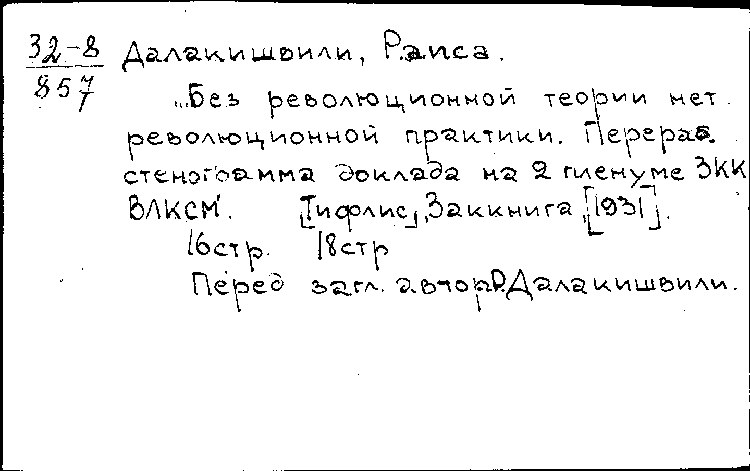 32-8 Далакишвили, Раиса.
857/1
„Без революционной теории нет
революционной практики. Перераб.
стенограмма доклада на 2 пленуме ЗКК
ВЛКСМ". [Тифлис], Заккнига, [1931].
16стр. 18стр
Перед загл. автор Р. Далакишвили.